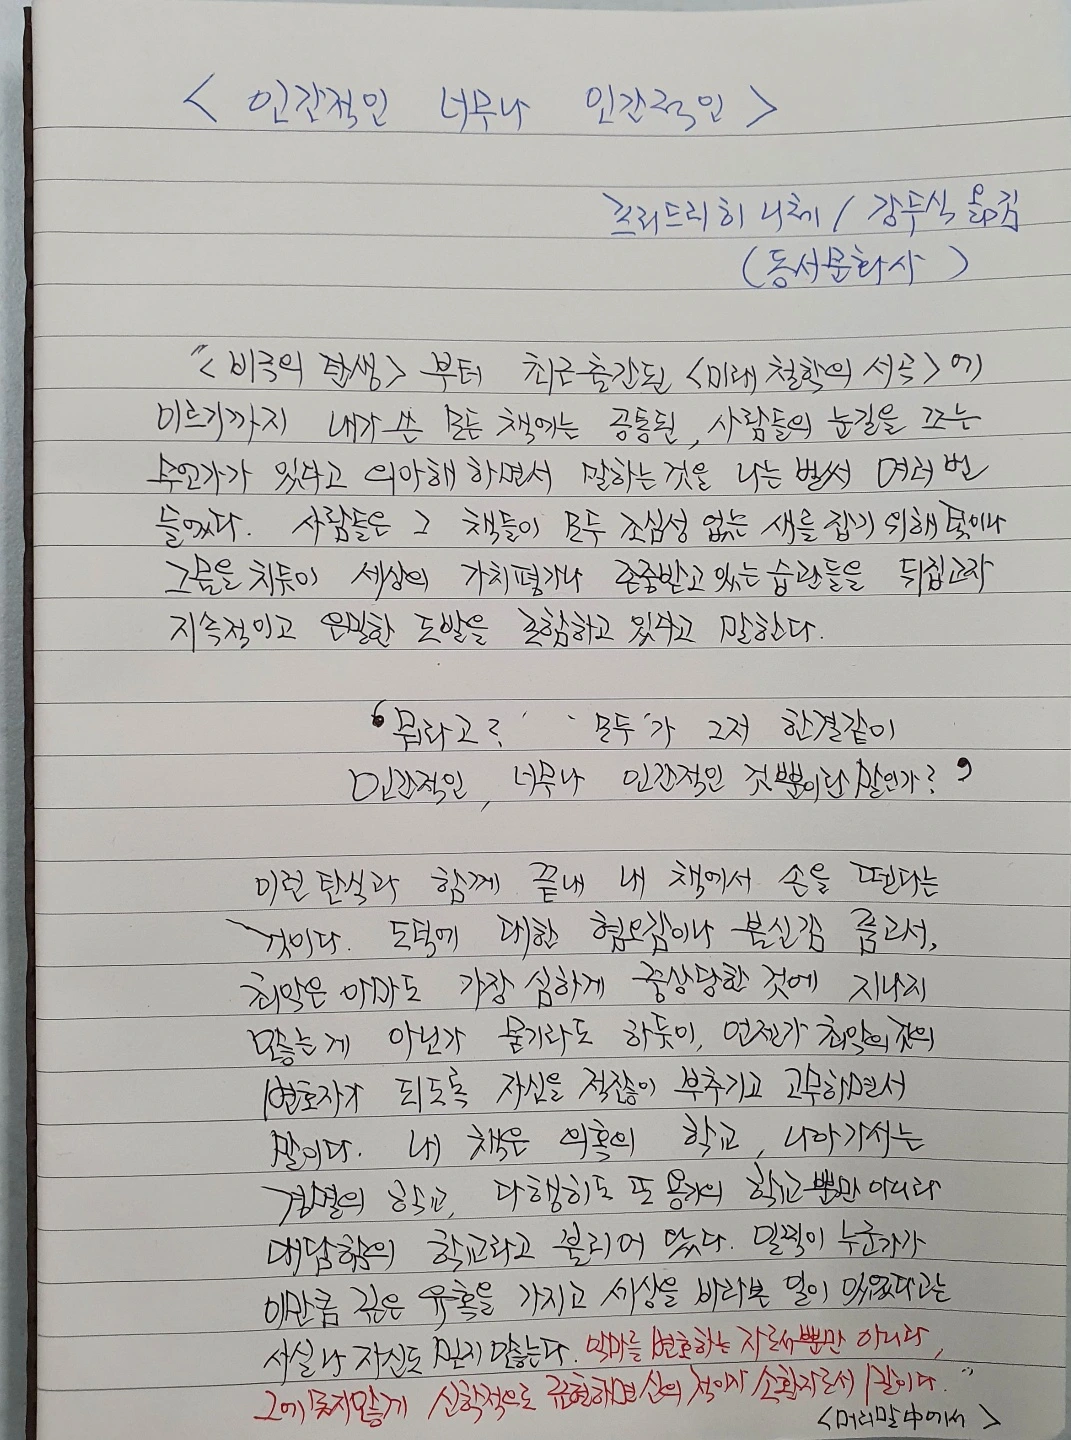 < 인간적인 너무나 인간적인 >
프리드리히 니체 / 강두식 옮김
(동서문화사)
"<비극의 탄생> 부터 최근 출간된 <미래 철학의 서곡>에
이르기까지 내가 쓴 모든 책에는 공통된, 사람들의 눈길을 끄는
무언가가 있다고 의아해 하면서 말하는 것을 나는 벌써 여러 번
들었다. 사람들은 그 책들이 모두 조심성 없는 새를 잡기 위해 덫이나
그물을 치듯이 세상의 가치평가나 존중받고 있는 습관들을 뒤집고자
지속적이고 은밀한 도발을 포함하고 있다고 말한다.
'뭐라고?' '모두'가 그저 한결같이
인간적인, 너무나 인간적인 것뿐이란 말인가?'
이런 탄식과 함께 끝내 내 책에서 손을 뗀다는
것이다. 도덕에 대한 혐오감이나 불신감 품고서,
최악은 아마도 가장 심하게 중상당한 것에 지나지
않는 게 아닌가 묻기라도 하듯이, 언젠가 최악의 것의
변호자가 되도록 자신을 적잖이 부추기고 고무하면서
말이다. 내 책은 의혹의 학교, 나아가서는
경멸의 학교, 다행히도 또 용기의 학교 뿐만 아니라
대담함의 학교라고 불리어 왔다. 일찍이 누군가가
이만큼 깊은 유혹을 가지고 세상을 바라본 일이 있었다고는
사실 나 자신도 믿지 않는다. 악마를 변호하는 자로서 뿐만 아니라,
그에 못지않게 신학적으로 표현하면 신의 적이자 소환자로서 말이다."
<머리말 中에서>